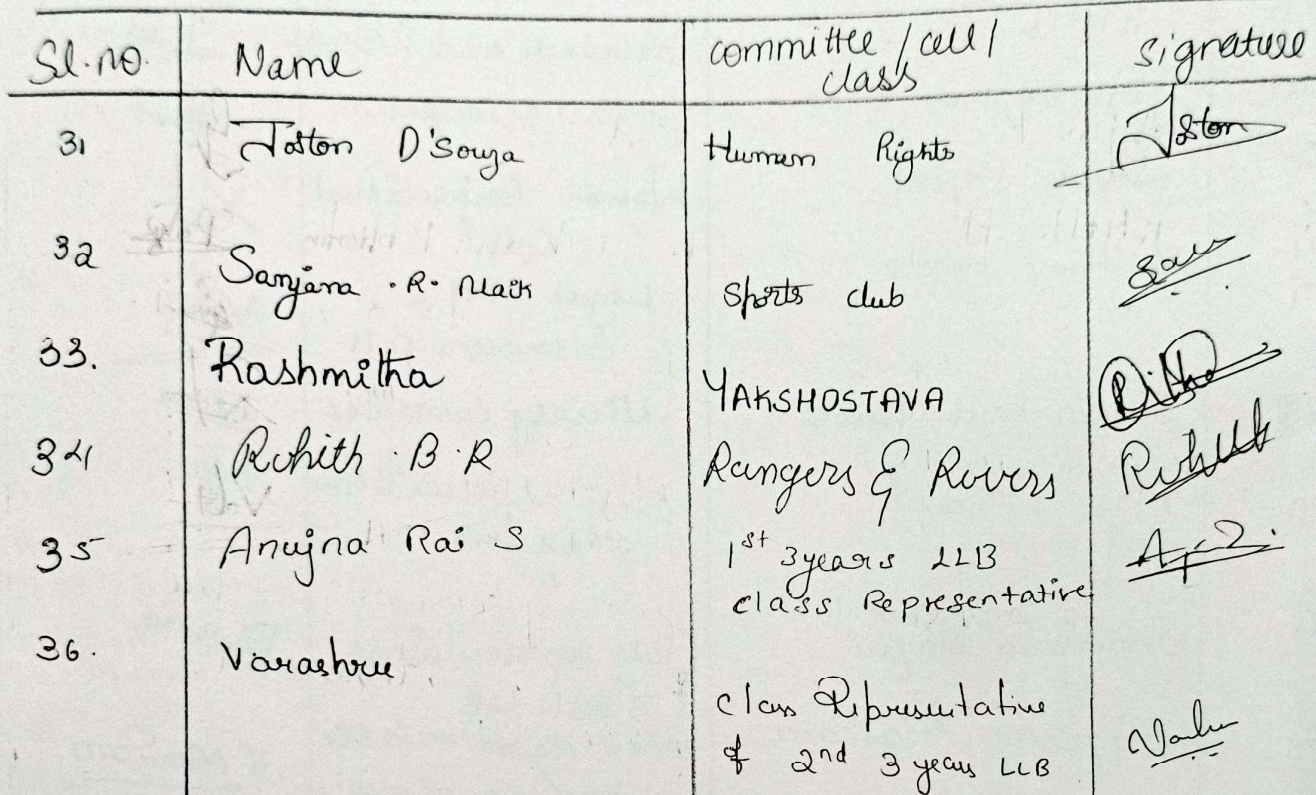 Sl.no. Name committee / cell / class signature
31 Joston D'Souza Human Rights Joston
32 Sanjana . R. Naik Sports club San
33. Rashmitha YAKSHOSTAVA
34 Rohith . B . R Rangers & Rovers Rohith
35 Anujna Rai S 1st 3years LLB
class Representative
36. Varashree
class Representative
of 2nd 3 years LLB